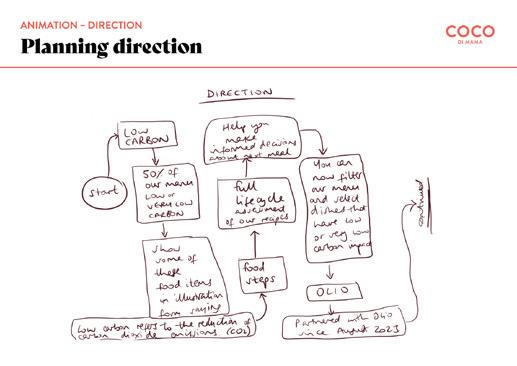 ANIMATION – DIRECTION
Planning direction
COCO
DI MAMA
DIRECTION
start
LOW
CARBON
50% of
our menu
LOW or
VERY LOW
CARBON
show
some of
these
food items
in illustration
form saying
Low carbon refers to the reduction of
carbon dioxide emissions (CO2)
food
steps
full
lifecycle
assessment
of our recipes
Help you
make
informed decisions
about next meal
You can
now filter
our menu
and select
dishes that
have low
or very low
carbon impact
OLIO
Partnered with Olio
since August 2023
continued